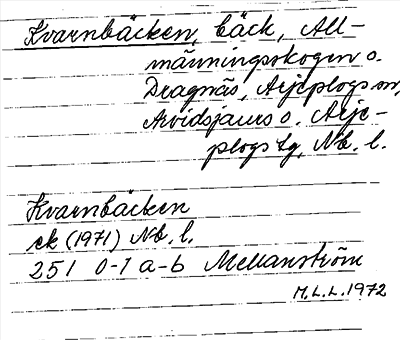 Kvarnbäcken, bäck, All-
männingsskogen o.
Dragnäs, Arjeplogs sn,
Arvidsjaurs o. Arje-
plogs tg, Nb. l.
Kvarnbäcken
ek (1971) Nb. l.
251 0-1 a-b Mellanström
M.L.L. 1972